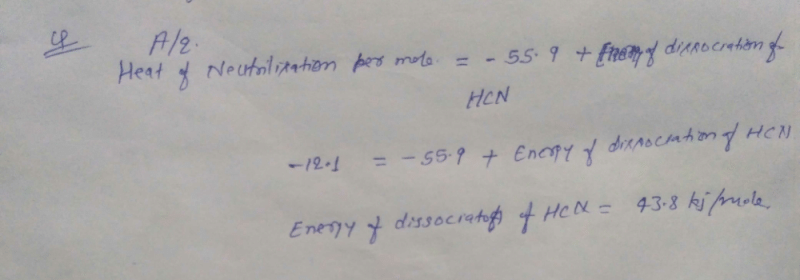 A/q.
Heat of Neutrilization per mole. = - 55.9 + of dissociation of
HCN
-12.1 = -55.9 + Energy of dissociation of HCN
Energy of dissociation of HCN = 43.8 kj/mole.